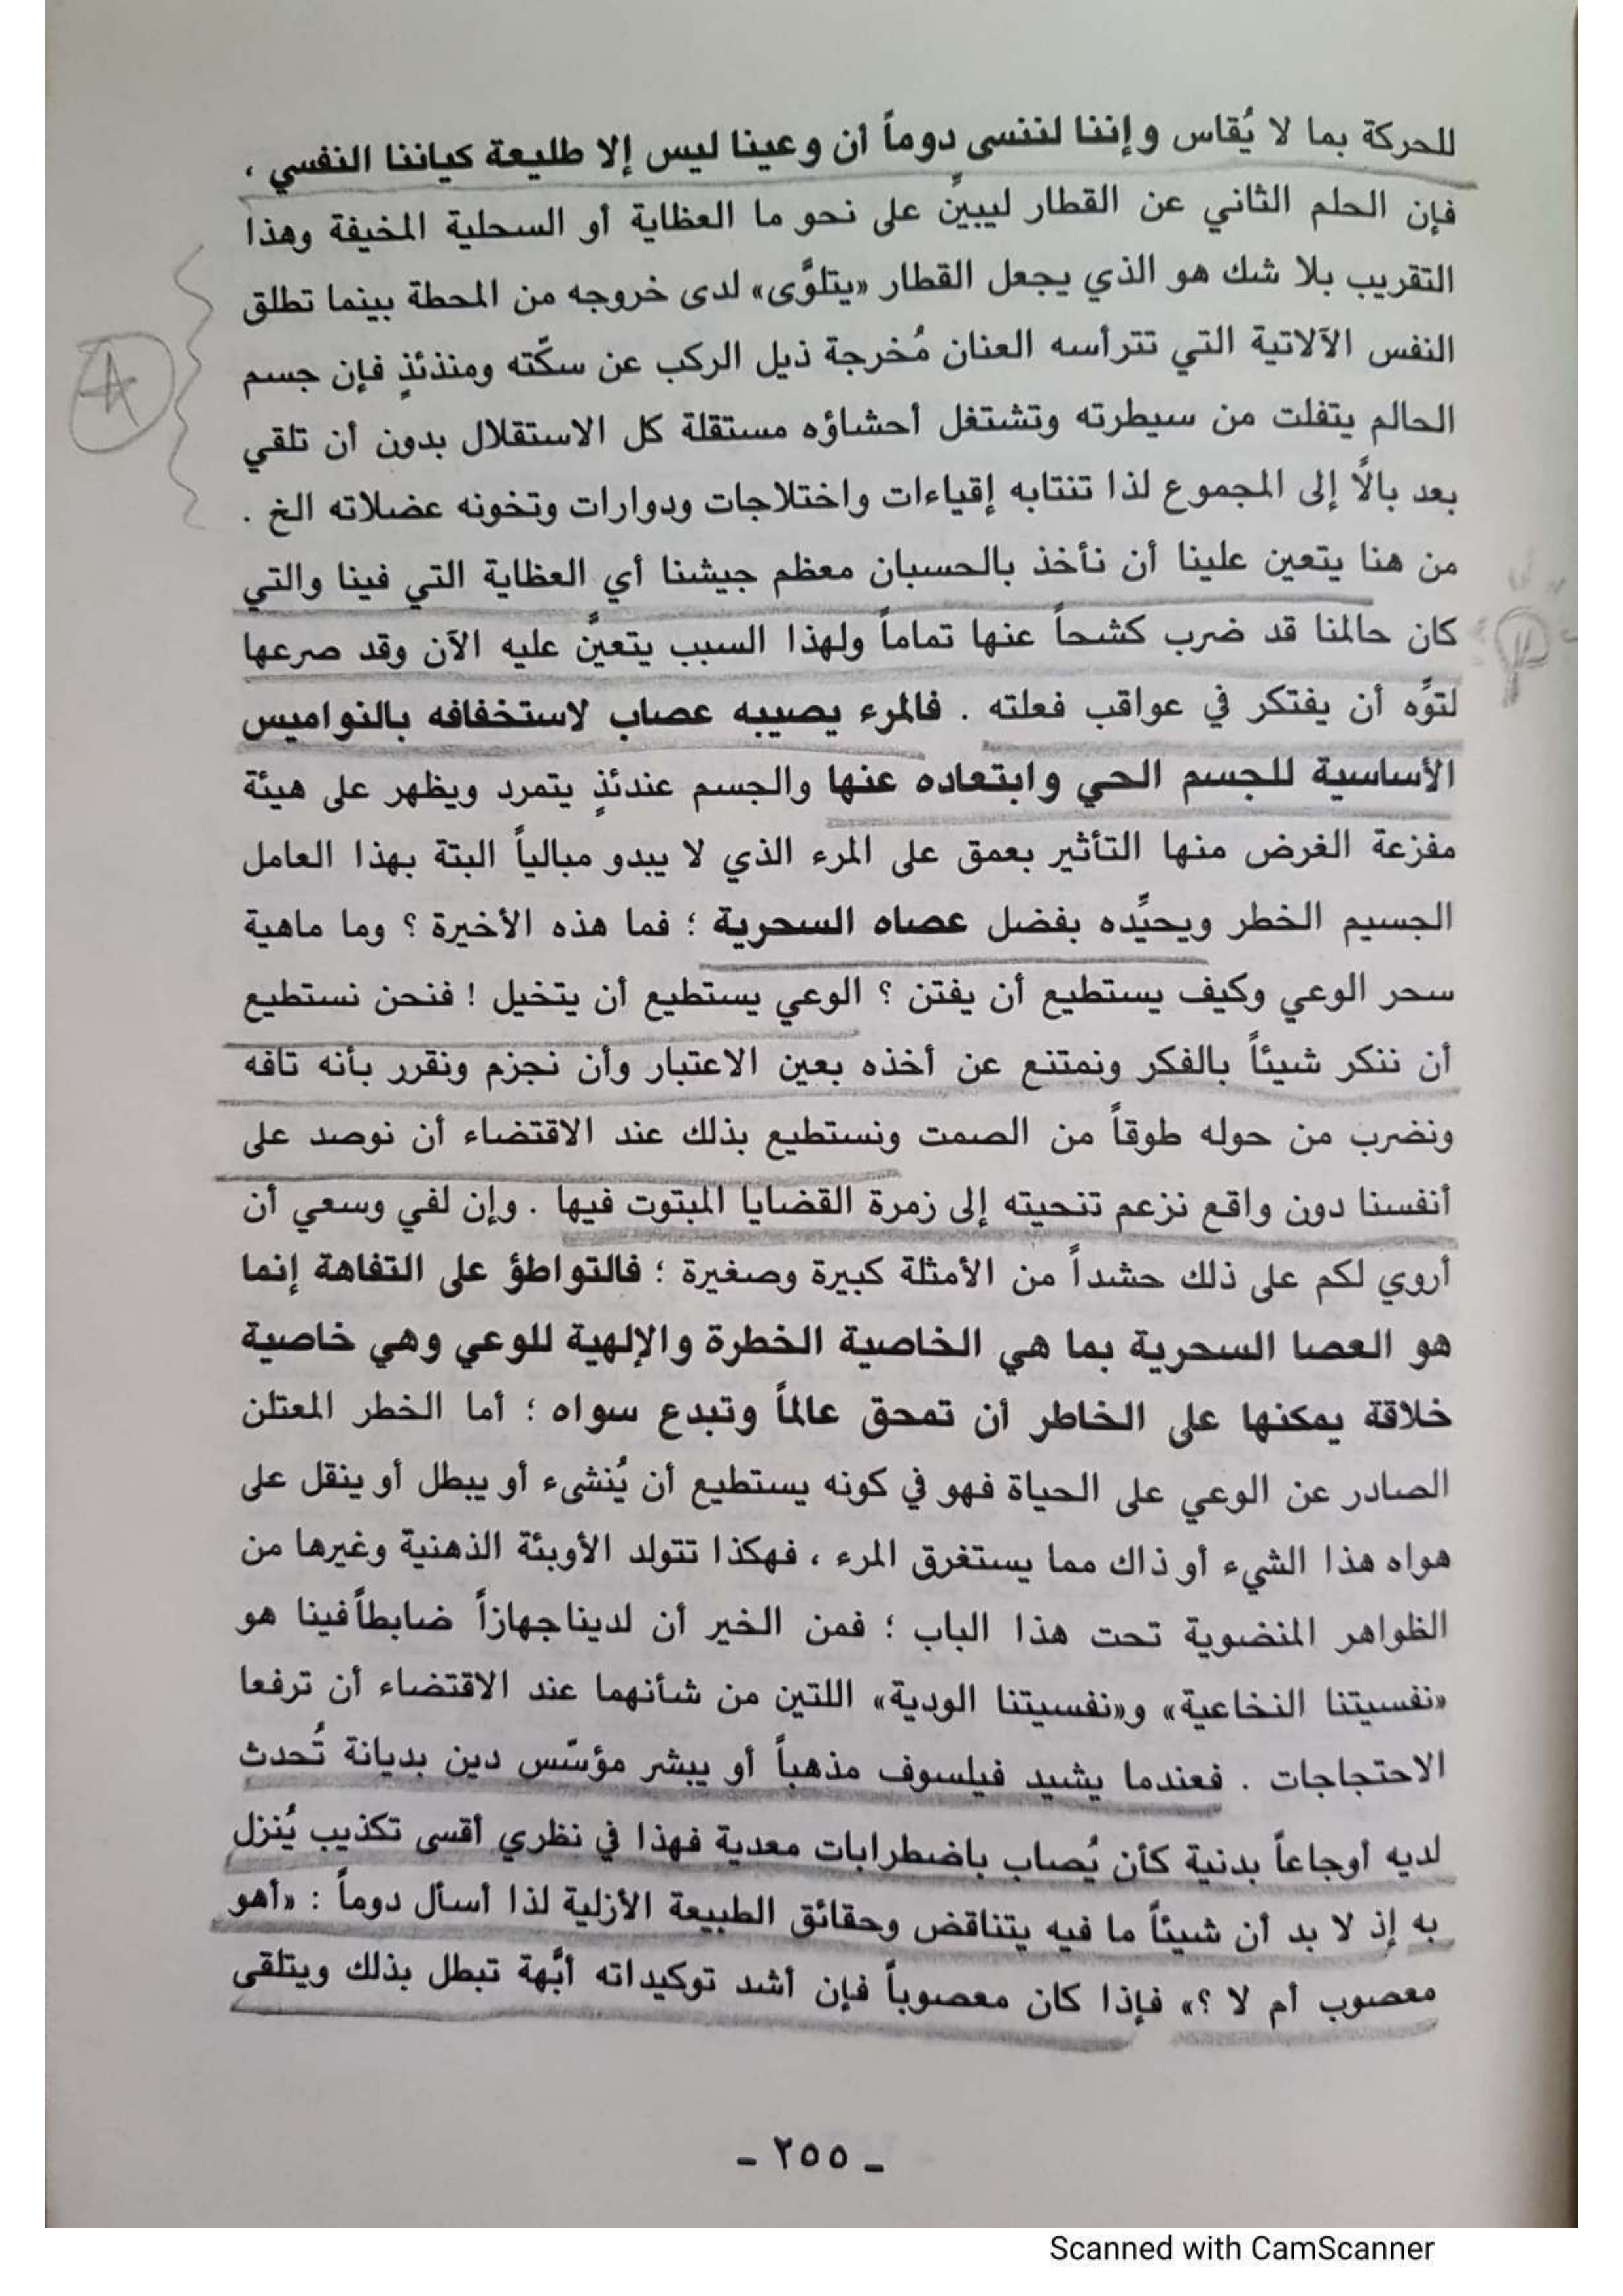 للحركة بما لا يُقاس وإننا لننسى دوماً أن وعينا ليس إلا طليعة كياننا النفسي ،
فإن الحلم الثاني عن القطار ليبينّ على نحو ما العظاية أو السحلية المخيفة وهذا
التقريب بلا شك هو الذي يجعل القطار «يتلوَّى» لدى خروجه من المحطة بينما تطلق
النفس الآلاتية التي تترأسه العنان مُخرجة ذيل الركب عن سكّته ومنذئذٍ فإن جسم
الحالم يتفلت من سيطرته وتشتغل أحشاؤه مستقلة كل الاستقلال بدون أن تلقي
بعد بالًا إلى المجموع لذا تنتابه إقياءات واختلاجات ودوارات وتخونه عضلاته الخ .
من هنا يتعين علينا أن نأخذ بالحسبان معظم جيشنا أي العظاية التي فينا والتي
كان حالمنا قد ضرب كشحاً عنها تماماً ولهذا السبب يتعينَّ عليه الآن وقد صرعها
لتوِّه أن يفتكر في عواقب فعلته . فالمرء يصيبه عصاب لاستخفافه بالنواميس
الأساسية للجسم الحي وابتعاده عنها والجسم عندئذٍ يتمرد ويظهر على هيئة
مفزعة الغرض منها التأثير بعمق على المرء الذي لا يبدو مبالياً البتة بهذا العامل
الجسيم الخطر ويحيِّده بفضل عصاه السحرية ؛ فما هذه الأخيرة ؟ وما ماهية
سحر الوعي وكيف يستطيع أن يفتن ؟ الوعي يستطيع أن يتخيل ! فنحن نستطيع
أن ننكر شيئاً بالفكر ونمتنع عن أخذه بعين الاعتبار وأن نجزم ونقرر بأنه تافه
ونضرب من حوله طوقاً من الصمت ونستطيع بذلك عند الاقتضاء أن نوصد على
أنفسنا دون واقع نزعم تنحيته إلى زمرة القضايا المبتوت فيها . وإن لفي وسعي أن
أروي لكم على ذلك حشداً من الأمثلة كبيرة وصغيرة ؛ فالتواطؤ على التفاهة إنما
هو العصا السحرية بما هي الخاصية الخطرة والإلهية للوعي وهي خاصية
خلاقة يمكنها على الخاطر أن تمحق عالماً وتبدع سواه ؛ أما الخطر المعتلن
الصادر عن الوعي على الحياة فهو في كونه يستطيع أن يُنشىء أو يبطل أو ينقل على
هواه هذا الشيء أو ذاك مما يستغرق المرء ، فهكذا تتولد الأوبئة الذهنية وغيرها من
الظواهر المنضوية تحت هذا الباب ؛ فمن الخير أن لديناجهازاً ضابطاًفينا هو
«نفسيتنا النخاعية» و«نفسيتنا الودية» اللتين من شأنهما عند الاقتضاء أن ترفعا
الاحتجاجات . فعندما يشيد فيلسوف مذهباً أو يبشر مؤسّس دين بديانة تُحدث
لديه أوجاعاً بدنية كأن يُصاب باضطرابات معدية فهذا في نظري أقسى تكذيب يُنزل
به إذ لا بد أن شيئاً ما فيه يتناقض وحقائق الطبيعة الأزلية لذا أسأل دوماً : «أهو
معصوب أم لا ؟» فإذا كان معصوباً فإن أشد توكيداته أبَّهة تبطل بذلك ويتلقى
ـ ٢٥٥ ـ
Scanned with CamScanner